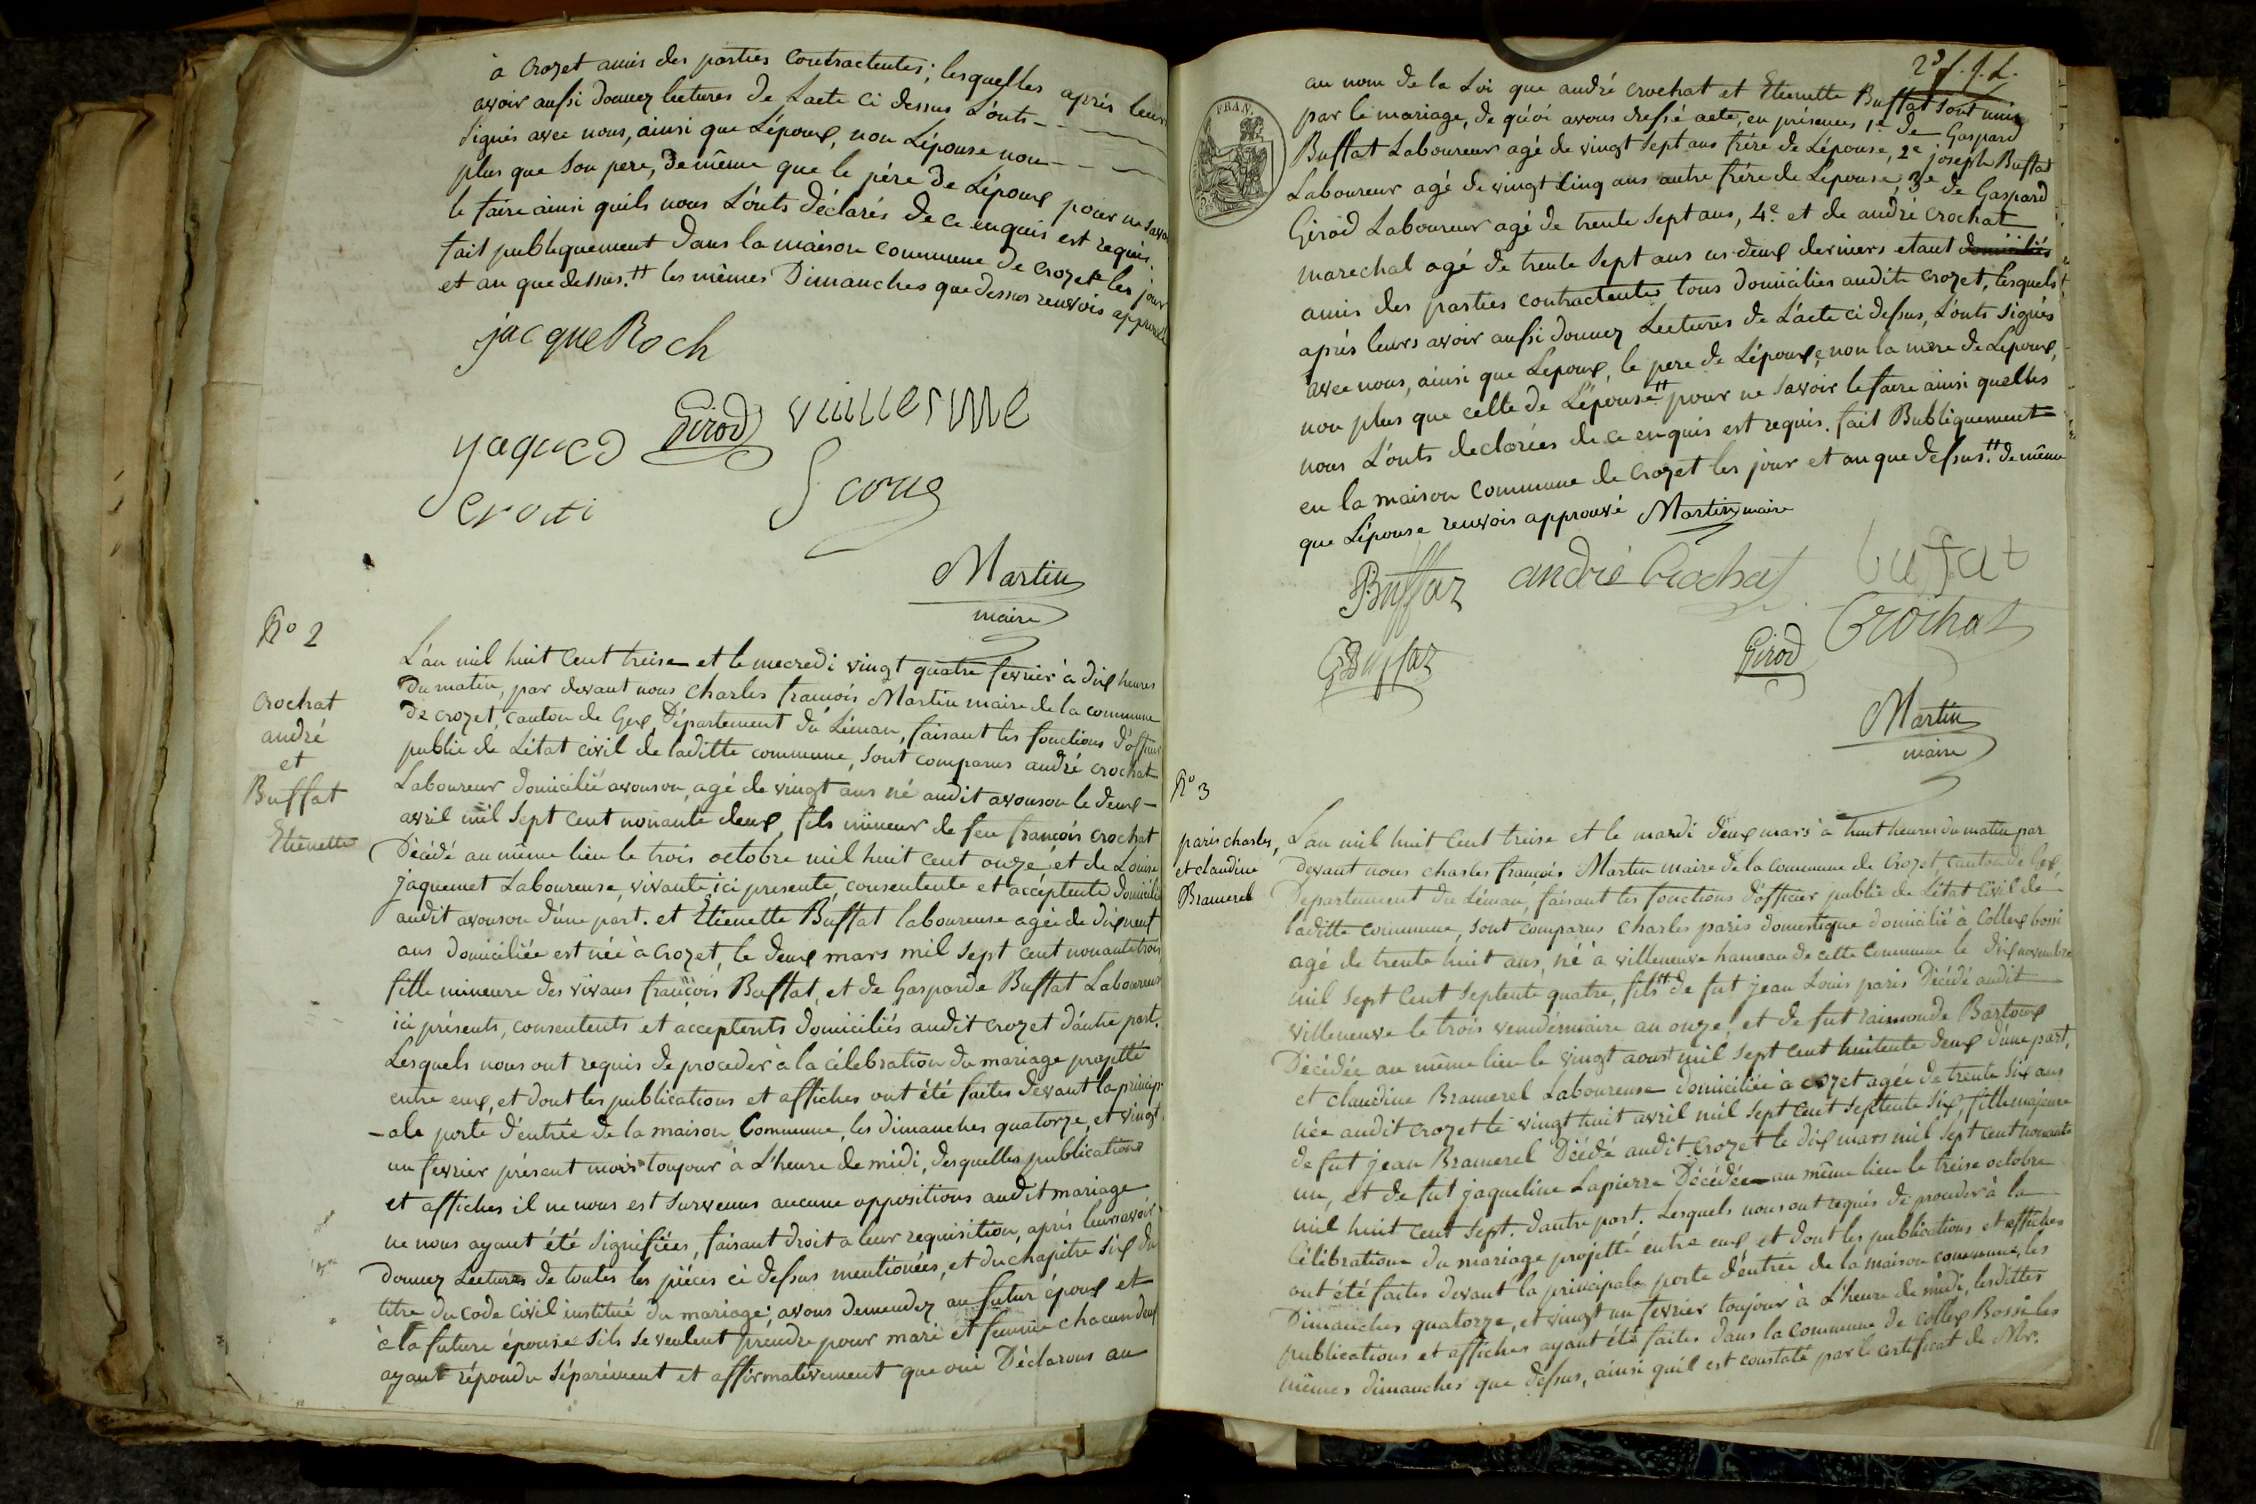 à Crozet amis des parties contractentes; lesquelles après leurs
avoir aussi donnez lectures de L'acte ci dessus L'onts
signés avec nous, ainsi que L'époux, non L'épouse non
plus que son pere, de même que le père de L'époux pour ne savoir
le faire ainsi quils nous L'onts déclarés de ce enquis est requis.
fait publiquement dans la maison commune de Crozet les jour
et an que dessus. ++ les mêmes Dimanches que dessus renvois approuvé
jacque Roch
Girod vuillerme
Martin
maire
No 2
Crochat
andré
et
Buffat
Etienette
L'an mil huit Cent treise et le mecredi vingt quatre fevrier à dix heures
du matin, par devant nous Charles françois Martin maire de la commune
de crozet, canton de Gex, Département du Léman, faisant les fonctions d'officier
public de L'état civil de laditte commune, sont comparus andré crochat
Laboureur domicilié avouson, agé de vingt ans né audit avouson le deux
avril mil sept cent nonante deux, fils mineur de feu françois crochat
Décédé au même lieu le trois octobre mil huit cent onze, et de Louise
jaquemet Laboureuse, vivante, ici presente, consentente et accéptente domiciliée
audit avouson d'une part. et Etienette Buffat laboureuse agée de dix neuf
ans domiciliée est née à crozet, le deux mars mil sept cent nonante trois,
fille mineure des vivans françois Buffat, et de Gasparde Buffat Laboureurs
ici présents, consentents et acceptents domiciliés audit crozet d'autre part.
Lesquels nous ont requis de proceder à la célebration du mariage projetté
entre eux, et dont les publications et affiches ont été faites devant la princip-
-ale porte d'entrée de la maison Commune, les dimanches quatorze, et vingt
un fevrier présent mois toujour à L'heure de midi, desquelles publications
et affiches il ne nous est survenus aucune oppositions audit mariage
ne nous ayant été signifiées, faisant droit a leur requisition, après leurs avoir
donnez Lectures de toutes les pièces ci dessus mentionées, et du chapitre six du
titre du Code Civil institué du mariage; avons demendez au futur époux et
à la future épouse sils se veulent prendre pour mari et femme chacun deux
ayant répondu séparément et affirmativement que oui Déclarons au
2e f. J. L.
au nom de la Loi que andré crochat et Etienette Buffat sont unis
par le mariage, de quoi avons dressé acte, en présences 1e de Gaspard
Buffat Laboureur agé de vingt sept ans frére de Lépouse, 2e joseph Buffat
Laboureur agé de vingt Cinq ans autre frére de Lepouse, 3e de Gaspard
Girod Laboureur agé de trente sept ans, 4e et de andré crochat
marechal agé de trente sept ans ces deux derniers etant domiciliés
amis des parties contractentes, tous domicilies audit crozet, lesquels
après leurs avoir aussi donnez Lectures de L'acte ci dessus, L'onts signés
avec nous, ainsi que Lepoux, le pere de L'épouse, non la mere de Lepoux,
non plus que celle de L'épouse ++ pour ne savoir le faire ainsi quelles
nous L'onts declarées de ce enquis est requis. fait Publiquement
en la maison Commune de Crozet les jour et an que dessus. ++ de même
que L'épouse renvois approuvé Martin maire
Buffaz andré Crochat buffat
G Buffaz Girod Crochat
Martin
maire
No 3
paris charles,
et claudine
Bramerel
L'an mil huit Cent treise et le mardi deux mars à huit heures du matin par
devant nous charles françois Martin maire de la Commune de Crozet, canton de Gex,
Departement du Léman, faisant les fonctions d'officier public de L'état civil de
laditte Commune, sont comparus Charles paris domestique domicilié à Collex bossi
agé de trente huit ans, né à villeneuve hameau de cette Commune le dix novembre
mil sept Cent septente quatre, fils ++ de fut jean Louis paris Décédé audit
villeneuve le trois vendémiaire an onze, et de fut raimonde Bartoux
Décédée au même lieu le vingt aoust mil sept cent huitente deux d'une part,
et claudine Bramerel Laboureuse domiciliée à crozet agée de trente six ans
née audit crozet le vingt huit avril mil sept cent septente six, fille majeure
de fut jean Bramerel Décédé audit Crozet le dix mars mil sept cent nonante
un, et de fut jaqueline Lapierre Décédée au même lieu le treise octobre
mil huit Cent sept. d'autre part. Lesquels nous ont requis de proceder à la
Célébrations du mariage projetté entre eux et dont les publications et affiches
ont été faites devant la principale porte d'entrée de la maison commune, les
Dimanches quatorze, et vingt un fevrier toujour à L'heure de midi, lesdittes
publications et affiches ayant été faites dans la commune de Collex Bossi les
mêmes dimanches que dessus, ainsi quil est constaté par le certificat de Mr.